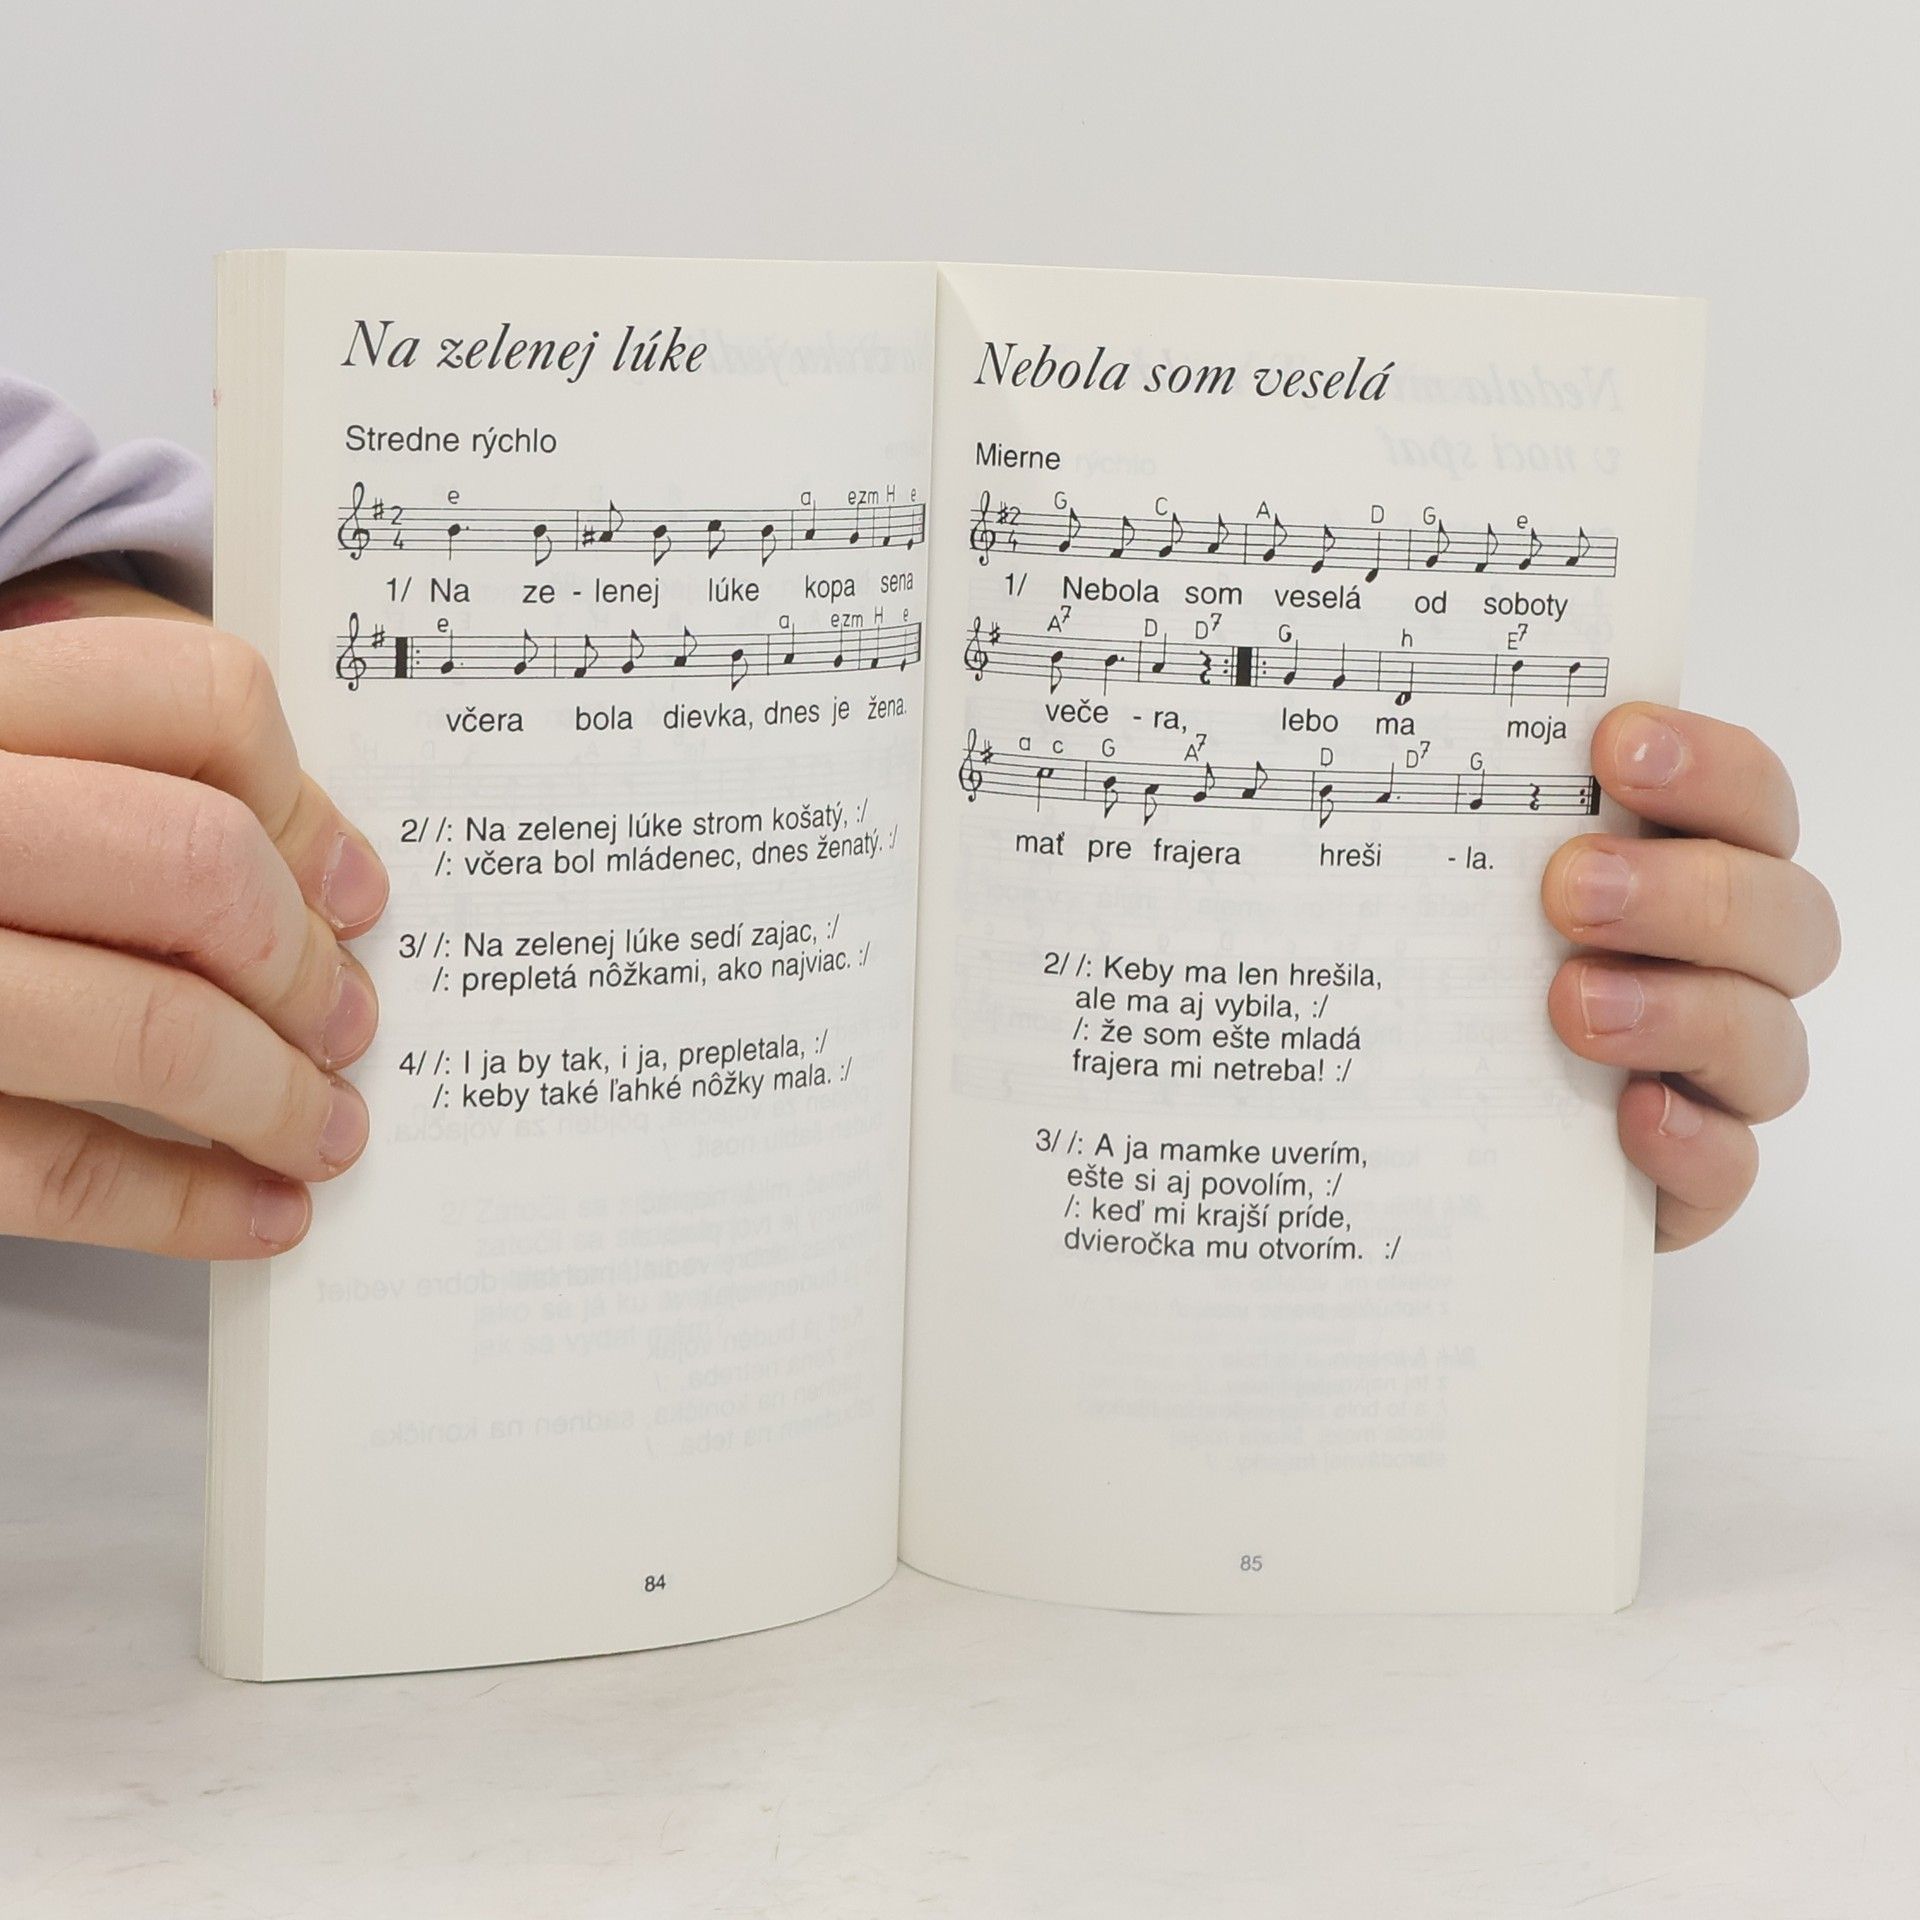 Na zelenej lúke
Stredne rýchlo
e a ezm H e
2
4
1/ Na ze - lenej lúke kopa sena
e a ezm H e
včera bola dievka, dnes je žena.
2/ /: Na zelenej lúke strom košatý, :/
/: včera bol mládenec, dnes ženatý. :/
3/ /: Na zelenej lúke sedí zajac, :/
/: prepletá nôžkami, ako najviac. :/
4/ /: I ja by tak, i ja, prepletala, :/
/: keby také ľahké nôžky mala. :/
84
Nebola som veselá
Mierne
G C A D G e
2
4
1/ Nebola som veselá od soboty
A7 D D7 G h E7
veče - ra, lebo ma moja
a c G A7 D D7 G
mať pre frajera hreši - la.
2/ /: Keby ma len hrešila,
ale ma aj vybila, :/
/: že som ešte mladá
frajera mi netreba! :/
3/ /: A ja mamke uverím,
ešte si aj povolím, :/
/: keď mi krajší príde,
dvieročka mu otvorím. :/
85